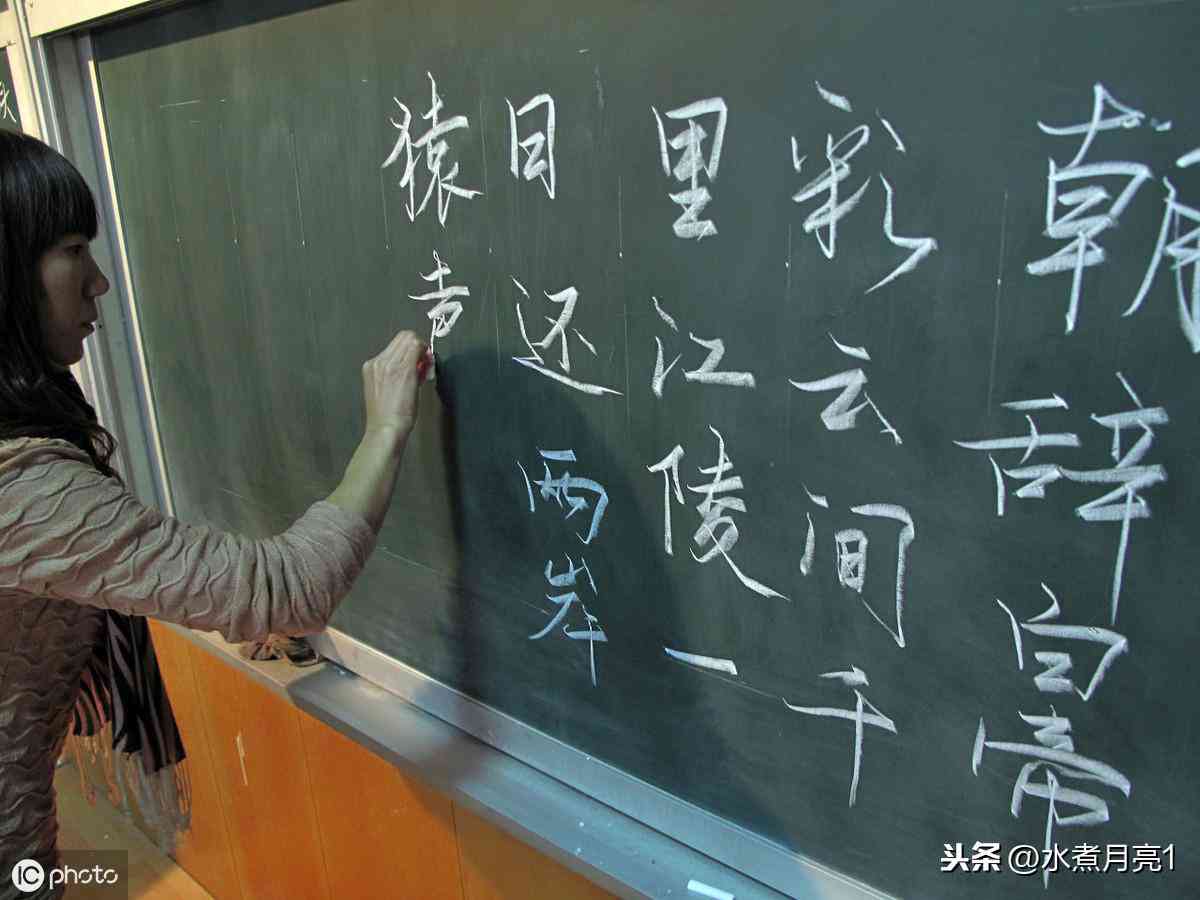 朝辞白帝
彩云间千
里江陵一
日还两岸
猿声
头条 @水煮月亮1
IC photo